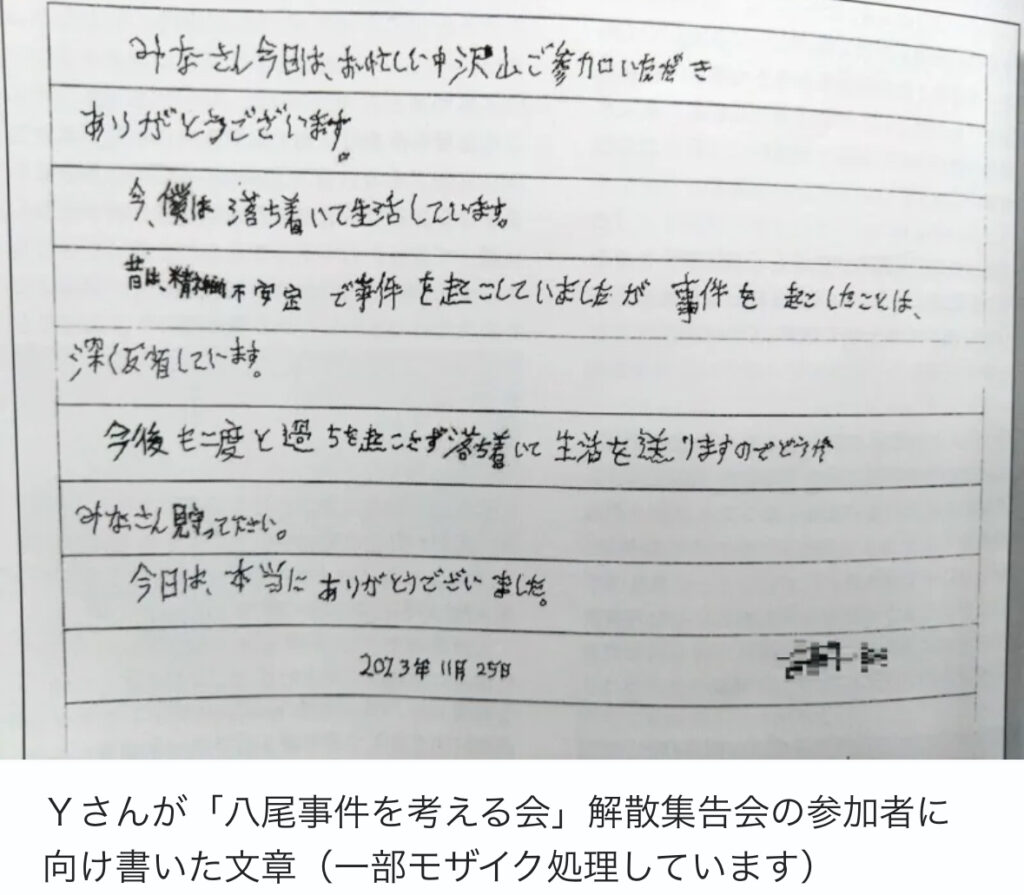 みなさん今日は、お忙しい中沢山ご参加いただき
ありがとうございます。
今、僕は落ち着いて生活しています。
昔は、精神不安定で事件を起こしていましたが事件を起こしたことは、
深く反省しています。
今後も二度と過ちを起こさず落ち着いて生活を送りますのでどうか
みなさん見守って下さい。
今日は、本当にありがとうございました。
2023年11月25日
Yさんが「八尾事件を考える会」解散集告会の参加者に
向け書いた文章（一部モザイク処理しています）